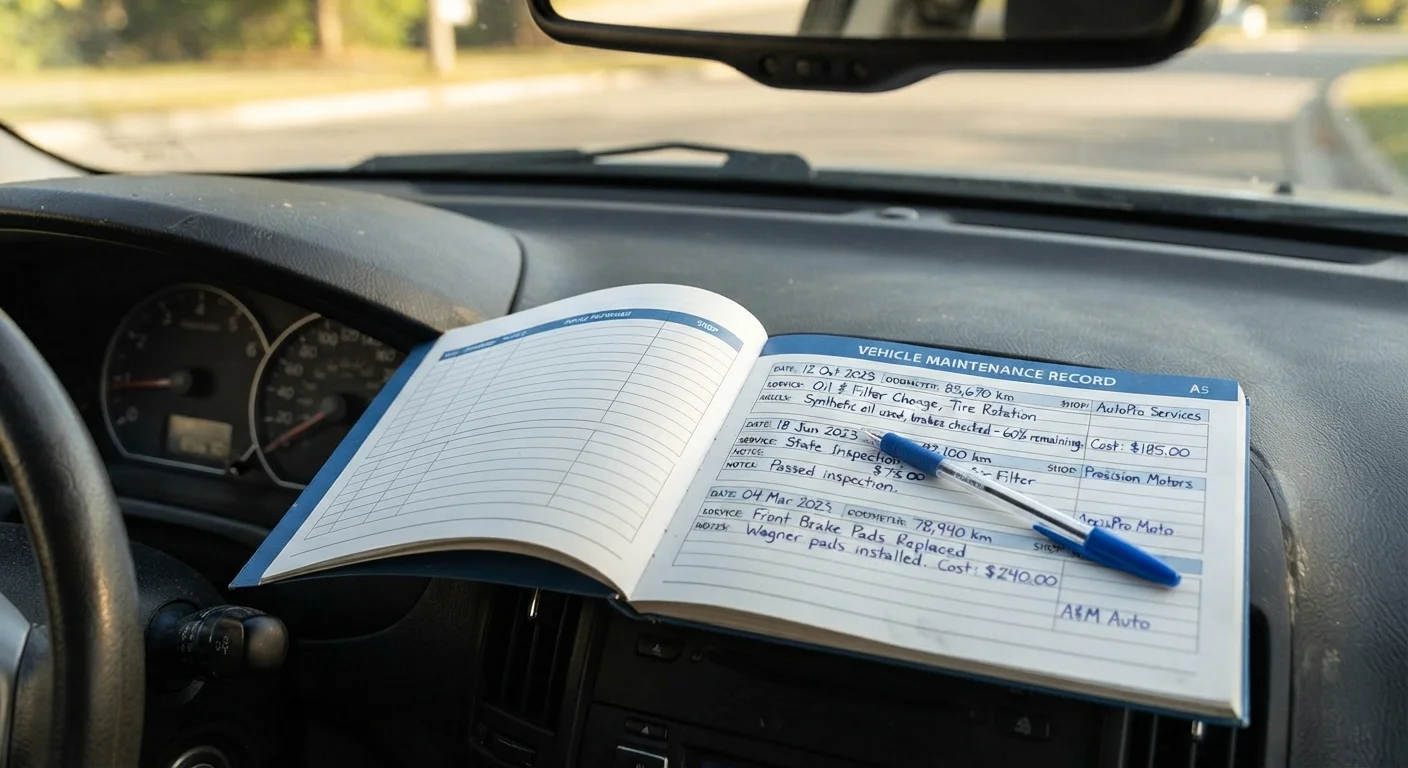 VEHICLE MAINTENANCE RECORD A5
DATE: 12 Oct 2023 ODOMETER: 83,670 km SHOP: AutoPro Services
SERVICE: Oil & Filter Change, Tire Rotation
Synthetic oil used, brakes checked - 60% remaining. Cost: $185.00
DATE: 18 Jun 2023 100 km SHOP Precision Motors
SERVICE: State Inspection, Filter
NOTCE: $75.00
NOTCE: Passed inspection.
DATE: 04 Mar 2023 78,940 km Moto
SERVICE: Front Brake Pads Replaced
NOTES: Wagner pads installed. Cost: $240.00
A&M Auto